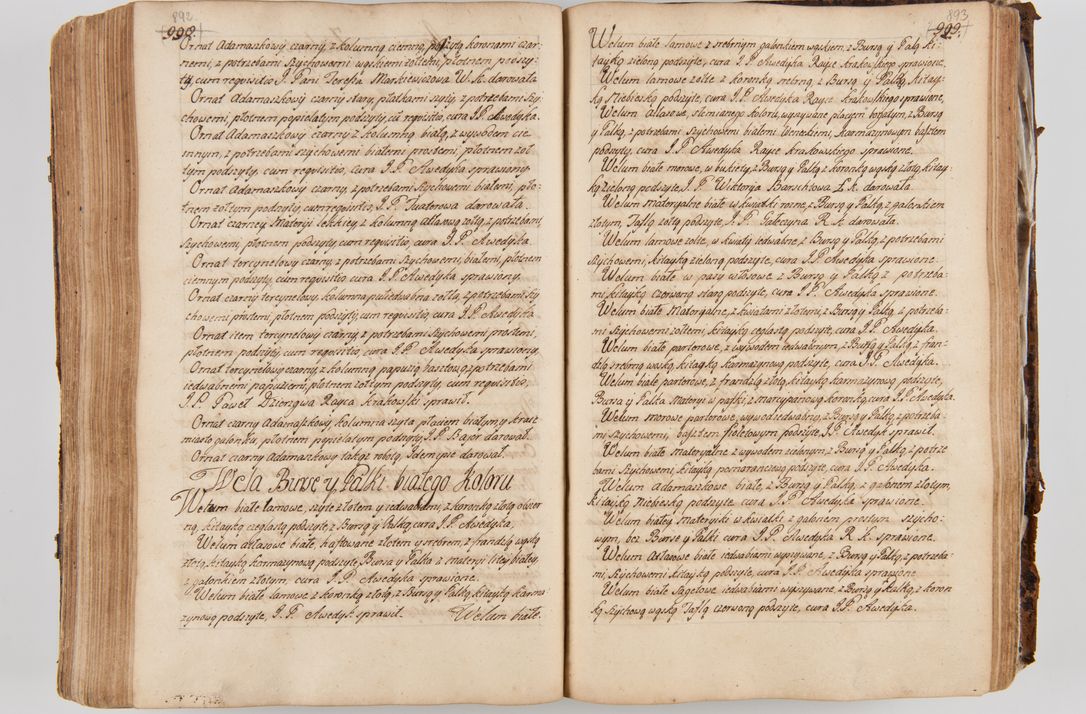 892
998.
Ornat Adamaszkowy czarny, z kolumną ciemną, pszytą koronami czar-
nemi, z potrzebami szychowemi wąskiemi zołtem, płotnem podszy-
ty, cum requisitis J. Pani Teressa Markiewiczowa W. K. darowała
Ornat Adamaszkowy czarny stary, płatkami szyty, z potrzebami szy
chowemi, płotnem popielatym podszyty, cū requisitis, cura J.P. Awedyka.
Ornat Adamaszkowy czarny z kolumną białą, z wywodem cie
mnym, z potrzebami szychowemi białemi prostemi, płotnem zoł
tym podszyty, cum requisitis, cura J.P. Awedyka sprawiony.
Ornat Adamaszkowy czarny, z potrzebami szychowemi białemi, pło-
tnem zołtym podszyty, cum requisitis, J.P. Tuatorowa darowała.
Ornat czarney materyi lekkiey z kolumną atłasową zołtą, z potrzebami
szychowemi, płotnem podszyty, cum requisitis, cura J.P. Awedyka.
Ornat tercynelowy czarny, z potrzebami szychowemi, białemi, płotnem
ciemnym podszyty, cum requisitis cura J.P. Awedyka sprawiony.
Ornat czarny tercynelowy, kolumna puł iedwabna zołta, z potrzebami szy
chowemi prostemi, płotnem podszyty, cum requisitis, cura J.P. Awedyka.
Ornat item tercynelowy czarny z potrzebami szychowemi prostemi,
płotnem podszyty, cum requisitis, cura J.P. Awedyka sprawiony.
Ornat tercynelowy czarny, z kolumną papuzią hasztową z potrzebami
iedwabnemi papuziemi, płotnem zołtym podszyty, cum requisitis,
J.P. Paweł Dziengwa Rayca Krakowski sprawił.
Ornat czarny Adamaszkowy, kolumna szyta płaciem białym, y Krare
miasto galonku, płotnem popielatym podszyty J.P. Bajor darował.
Ornat czarny Adamaszkowy takąz robotą, Idem ipse darował.
Wela Bursę y Palki białego Koloru
Welum białe lamowe, szyte złotem y iedwabiem, z koronką złotą obszer
ną, kitayką ceglastą podszyte, z Bursą y Palką, cura J.P. Awedyka.
Welum atłasowe białe, haftowane złotem y srebrem, z frandzlą wąską
złotą, kitayką karmazynową podszyte, Bursa y Palka z materyi litey białey,
z galonkiem złotym, cura J.P. Awedyka sprawione.
Welum białe lamowe z koronką złotą, z Bursą y Palką, kitayką karma-
zynową podszyte, J.P. Awedyk sprawił.
Welum białe
893
999.
Welum białe lamowe z srebrnym galonkiem wąskiem, z Bursą y Palą ki-
tayką zieloną podszyte, cura J.P. Awedyka Raycę Krakowskiego sprawione,
Welum lamowe zołte z koronką srebrną, z Bursą y Palką, kitay-
ką niebieską podszyte, cura J.P. Awedyka Raycę Krakowskiego sprawione,
Welum atłasowe, słomianego koloru, wyszywane płaciem bogatym, z Bursą
y Palką, z potrzebami szychowemi białemi Weneckiemi, karmazynowym bagetem
podszyty, cura J.P. Awedyka Rayce Krakowskiego sprawione.
Welum białe morowe, w bukiety, z Bursą y Palką z koronką wąską złotą, kitay-
ką zieloną podszyte, J.P. Wiktorya Barschtowa Z.K. darowała.
Welum materyalne białe w kwiatki rozne, z Bursą y Palką, z galonkiem
złotym, Taftą zołtą podszyte, J.P. Gałeczyna R.K. darowała.
Welum lamowe zołte, w kwiaty iedwabne, z Bursą y Palką, z potrzebami
szychowemi, kitayką zieloną podszyte, cura J.P. Awedyka sprawione.
Welum białe w pasy włosowe z Bursą y Palką z potrzeba-
mi kitayką czerwoną starą podszyte, cura J.P. Awedyka sprawione.
Welum białe Materyalne, z kwiatami złotemi, z Bursą y Palką, z potrzeba-
mi szychowemi zołtemi, kitayką ceglastą podszyte, cura J.P. Awedyka.
Welum białe parterowe, z wywodem iedwabnym, z Bursą y Palką, z fran-
dzlą srebrną wąską, kitayką karmazynową podszyte, cura J.P. Awedyka.
Welum białe parterowe, z frandzlą złotą, kitayką karmazynową podszyte,
Bursa y Palka materyi w paski, z marcypanową koronką, cura J.P. Awedyka
Welum morowe parterowe, wywod iedwabny, z Bursą y Palką, z potrzeba-
mi szychowemi, bagetem fioletowym podszyte, J.P. Awedyk sprawił.
Welum białe materyalne z wywodem zielonym, z Bursą y Palką, z potrze
bami szychowemi, kitayką pomaranczową podszyte, cura J.P. Awedyka.
Welum Adamaszkowe białe, z Bursą y Palką, z galonem złotym,
kitayką niebieską podszyte cura J.P. Awedyka sprawione.
Welum białey materyiki w kwiatki z galonem prostym szycho-
wym, bez Bursę y Palki cura J.P. Awedyka R.K. sprawione.
Welum Atłasowe białe iedwabiami wyszywane, z Bursą y Palką, z potrzeba-
mi szychowemi kitayką podszyte, cura J.P. Awedyka sprawione
Welum białe Sagetowe iedwabiami wyszywane, z Bursą y Palką, z koron
ką szychową wąską Taftą czerwoną podszyte, cura J.P. Awedyka.